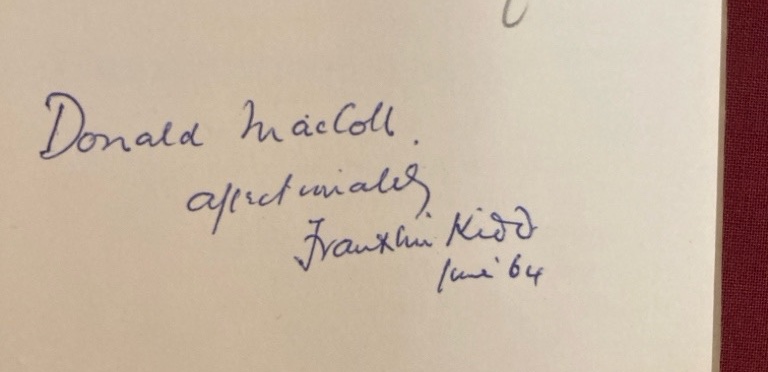 Donald MacColl.
affectionately
Franklin Kidd
June '64